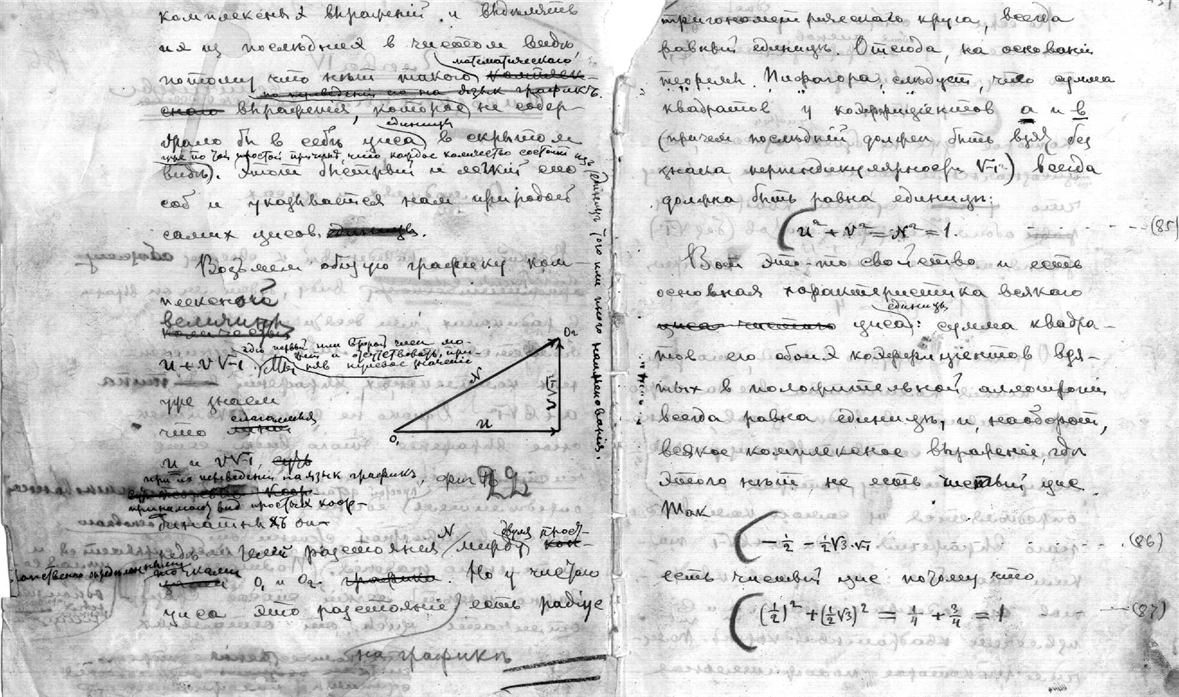 комплексных выражений и выделять
их из последних в чистом виде,
математического
потому что нет такого
выражения, которое не содер-
жало бы в себе циса в скрытом
единиц
еще по той простой причине, что каждое количество состоит из единиц (того или иного наименования).
виде). Этот быстрый и легкий спо-
соб и указывается нам природой
самих цисов.
Возьмем общую графику ком-
плексной
величины
где первый или второй член мо-
жет и отсутствовать, при-
няв нулевое значение
u + v√-1. Мы
уже знаем
что слагаемыя
u и v√-1,
при их переведении на язык графики, фиг. 22
принимают вид простых коор-
динатных
расстояния N между двумя
точками O₁ и O₂. Но у чистого
циса это расстояние есть радиус
на графике
N
u
v√-1
O₁
O₂
тригонометрического круга, всегда
равный единице. Отсюда, на основании
теоремы Пифагора, следует, что сумма
квадратов у коэффициентов а и в
(причем последний должен быть взят без
знака перпендикулярности √-1) всегда
должна быть равна единице:
u² + v² = N² = 1. (85)
Вот это-то свойство и есть
основная характеристика всякого
единиц
циса: сумма квадра-
тов его обоих коэффициентов взя-
тых в положительной
всегда равна единице, и, наоборот,
всякое комплексное выражение, где
этого нет, не есть чистый цис.
Так
-1/2 - 1/2√3·√-1 (86)
есть чистый цис потому что
(1/2)² + (1/2√3)² = 1/4 + 3/4 = 1 (87)